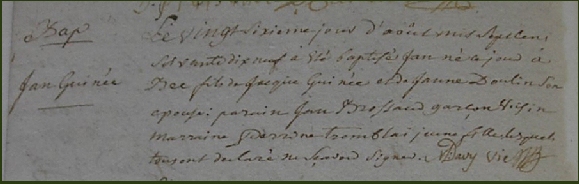 Bap
Jan Guinée
Le vingt sixieme jours d'août mis sept cen
soisvante dix neuf a été baptisé Jan né ce jour à
fils de Jacque Guinée et de Janne Doulin son
epouse: parain Jan Brossaud garçon
marraine perrine tromblai jeune fille lesquels
tous ont declaré ne savoir signer. Davy vic